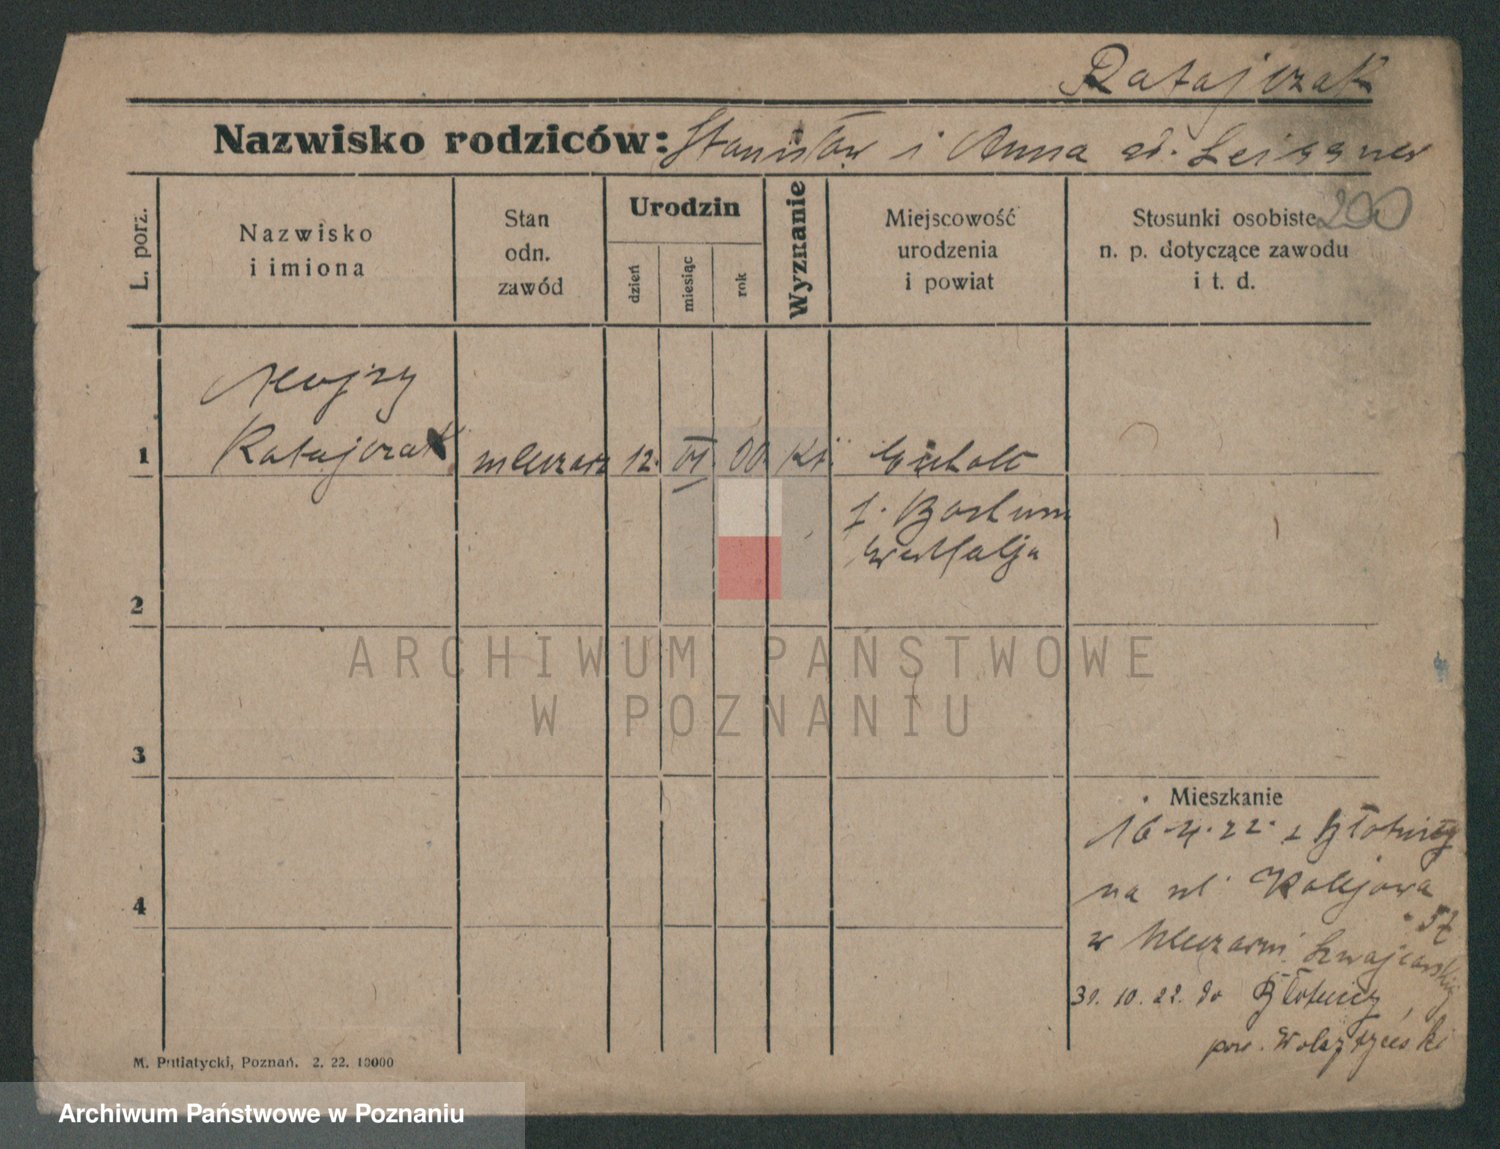 Ratajczak
Nazwisko rodziców: Stanisław i Anna
200
L. porz.
Nazwisko
i imiona
Stan
odn.
zawód
Urodzin
dzień
miesiąc
rok
Wyznanie
Miejscowość
urodzenia
i powiat
Stosunki osobiste
n. p. dotyczące zawodu
i t. d.
Alojzy
1 Ratajczak mleczarz 12. VI. 00 kt. Eickolt
p. Bochum
Westfalja
2
3
4
Mieszkanie
16.4.22. z Błotnicy
na ul. Kolejowa
57
w Mleczarni Szwajcarskiej
31. 10. 22. do Błotnicy
pow. Wolsztyński
M. Putiatycki, Poznań. 2. 22. 10000
ARCHIWUM PAŃSTWOWE
W POZNANIU
Archiwum Państwowe w Poznaniu